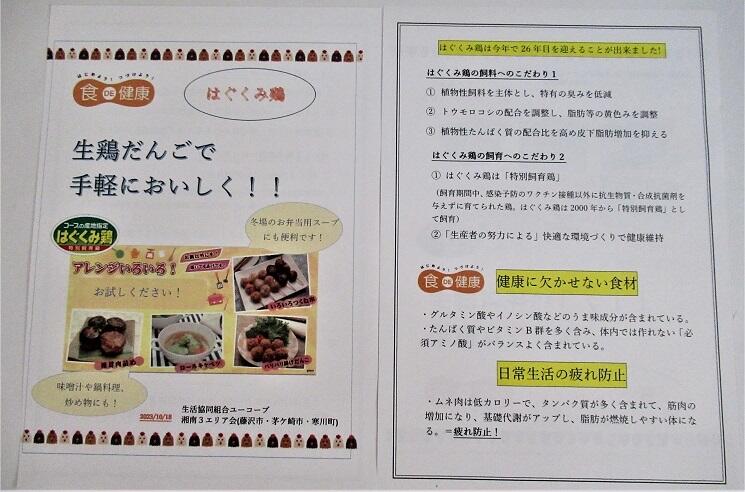 はじめよう！つづけよう！
食DE健康
はぐくみ鶏
生鶏だんごで
手軽においしく！！
コープの産地指定
はぐくみ鶏
特別飼育鶏
冬場のお弁当用スープ
にも便利です！
アレンジいろいろ！
お試しください！
いろいろつくね串
椎茸肉詰め
ロールキャベツ
パリパリ揚げだんご
味噌汁や鍋料理、
炒め物にも！
2023/10/18
生活協同組合ユーコープ
湘南３エリア会(藤沢市・茅ケ崎市・寒川町)
はぐくみ鶏は今年で26年目を迎えることが出来ました!
はぐくみ鶏の飼料へのこだわり１
① 植物性飼料を主体とし、特有の臭みを低減
② トウモロコシの配合を調整し、脂肪等の黄色みを調整
③ 植物性たんぱく質の配合比を高め皮下脂肪増加を抑える
はぐくみ鶏の飼育へのこだわり２
① はぐくみ鶏は「特別飼育鶏」
(飼育期間中、感染予防のワクチン接種以外に抗生物質・合成抗菌剤を
与えずに育てられた鶏。はぐくみ鶏は2000年から「特別飼育鶏」とし
て飼育)
②「生産者の努力による」快適な環境づくりで健康維持
はじめよう！つづけよう！
食DE健康
健康に欠かせない食材
・グルタミン酸やイノシン酸などのうま味成分が含まれている。
・たんぱく質やビタミンＢ群を多く含み、体内では作れない「必
須アミノ酸」がバランスよく含まれている。
日常生活の疲れ防止
・ムネ肉は低カロリーで、タンパク質が多く含まれて、筋肉の
増加になり、基礎代謝がアップし、脂肪が燃焼しやすい体にな
る。＝疲れ防止！